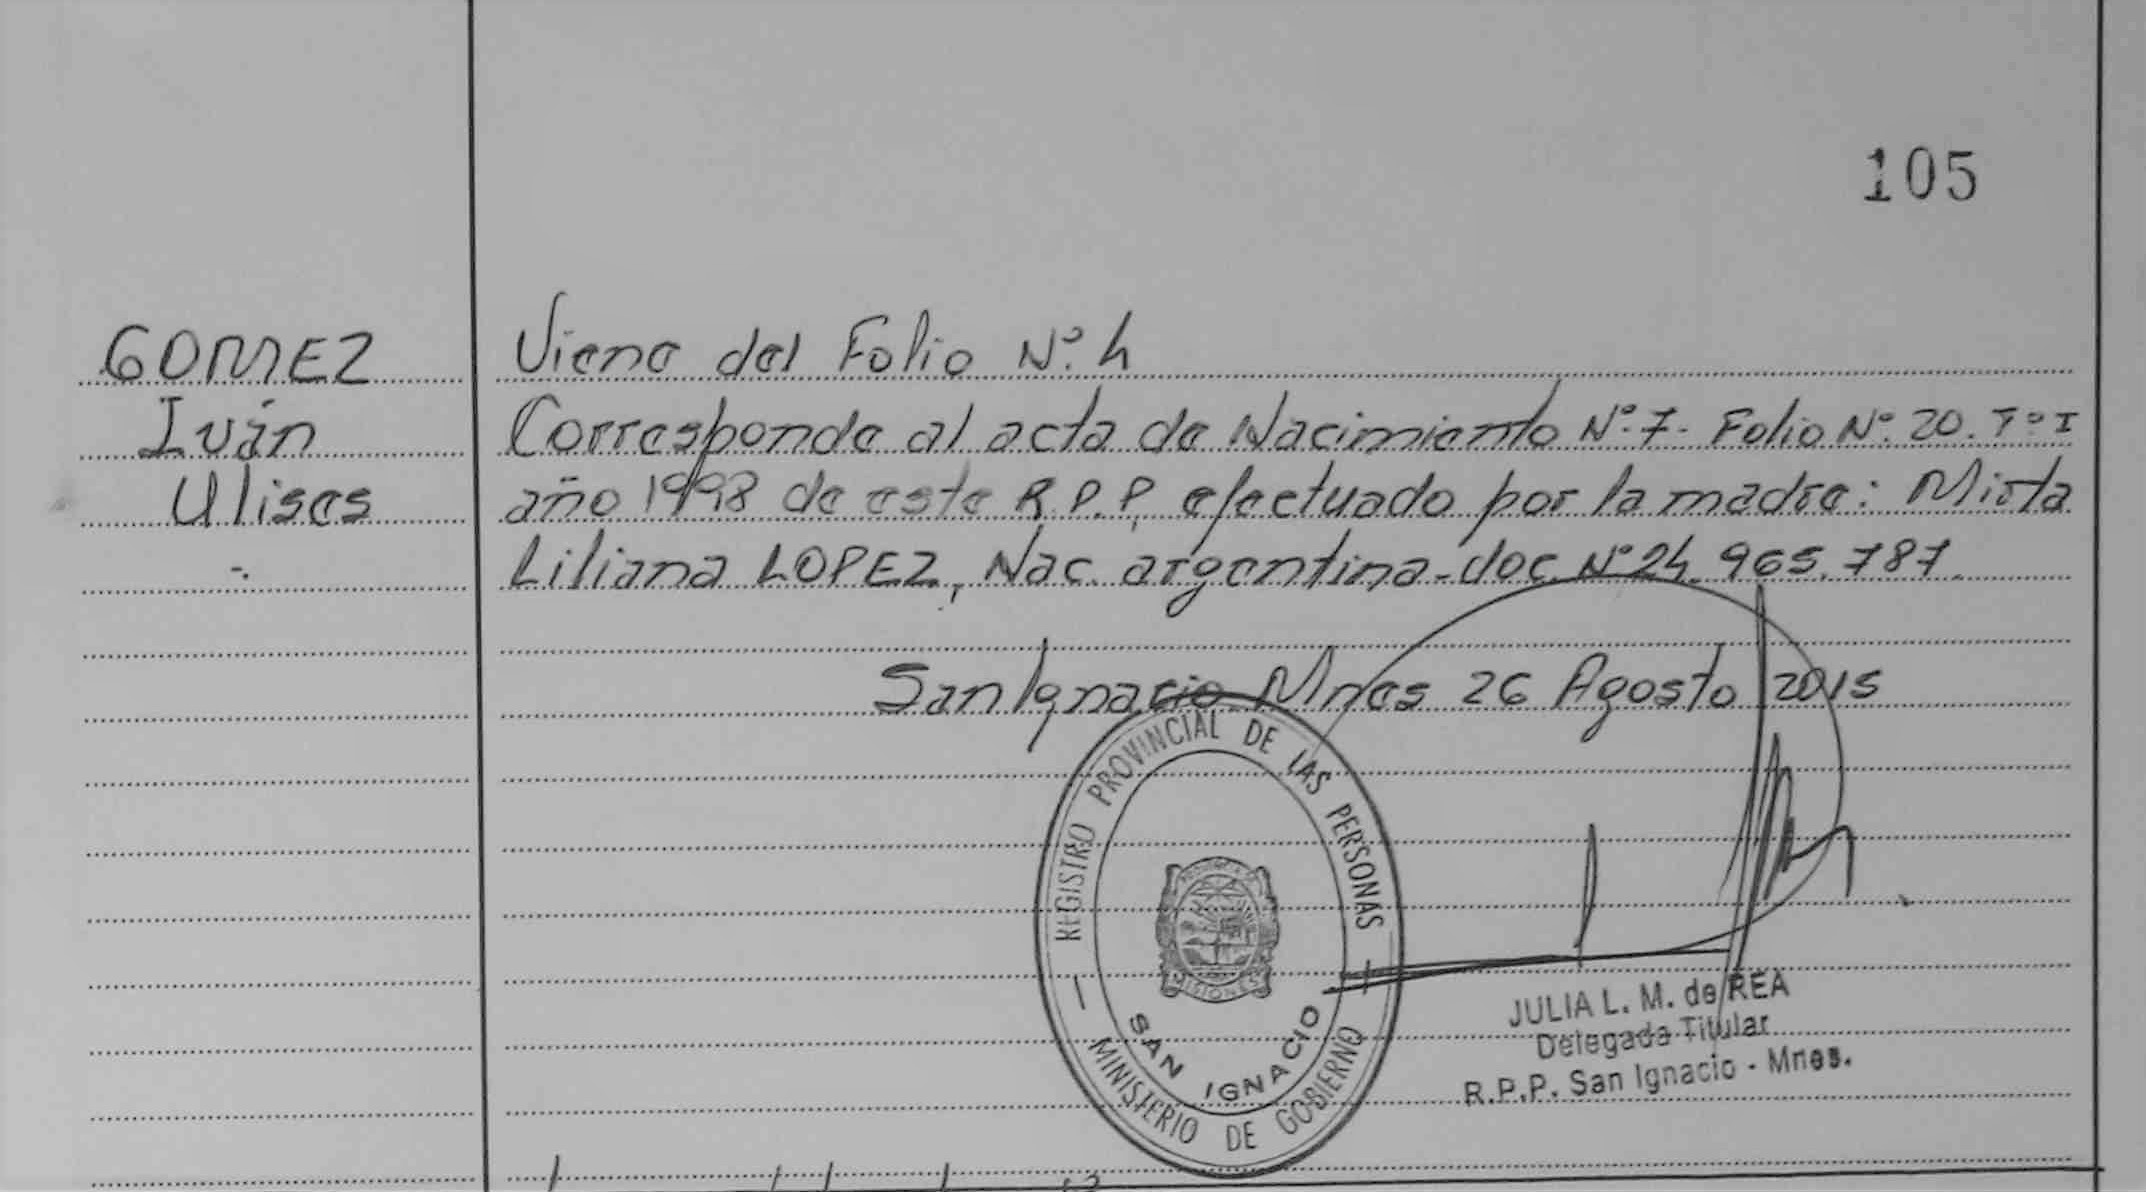 105
GOMEZ
Iván
Ulises
-.
Viene del Folio Nº. 4
Corresponde al acta de Nacimiento Nº. 7- Folio Nº. 20. Tº I
año 1998 de este R.P.P, efectuado por la madre: Mirta
Liliana LOPEZ, Nac. argentina - doc Nº 24.965.787.
San Ignacio Mnes 26 Agosto 2015
REGISTRO PROVINCIAL DE LAS PERSONAS
MISIONES
SAN IGNACIO
MINISTERIO DE GOBIERNO
JULIA L. M. de REA
Delegada Titular
R.P.P. San Ignacio - Mnes.